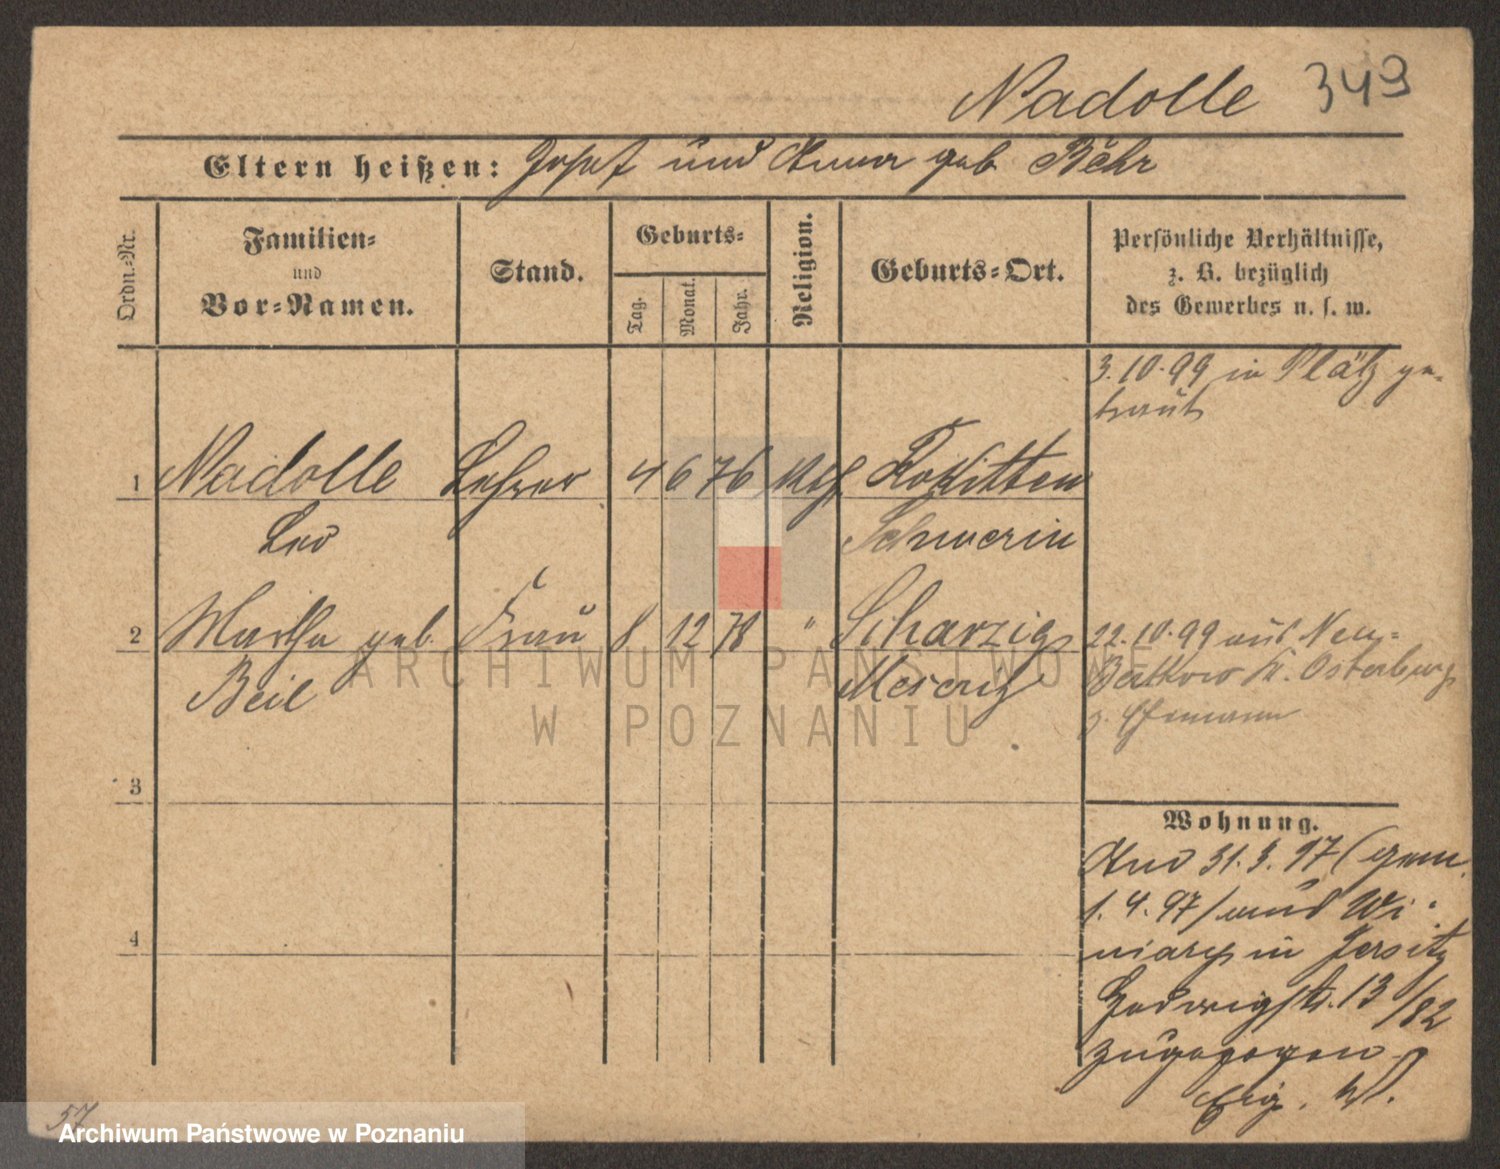 Nadolle 349
Eltern heißen: Josef und Anna geb. Bähr
Ordn.-Nr.
Familien-
und
Vor-Namen.
Stand.
Geburts-
Tag.
Monat.
Jahr.
Religion.
Geburts-Ort.
Persönliche Verhältnisse,
z. B. bezüglich
des Gewerbes u. s. w.
3.10.99 in Plätz ge-
traut
1 Nadolle Lehrer 4 6 76 kth Rokitten
Leo Schwerin
2 Martha geb. Frau 8 12 78 " Scharzig
Beil Meseritz
22.10.99 aus Neu-
Osterburg
z. Ehemann
3
4
Wohnung.
And 31.3.97 (gem.
1.4.97) aus Wi-
niary in Jersitz
Hedwigstr. 13/82
zugezogen
57
ARCHIWUM PAŃSTWOWE
W POZNANIU
Archiwum Państwowe w Poznaniu